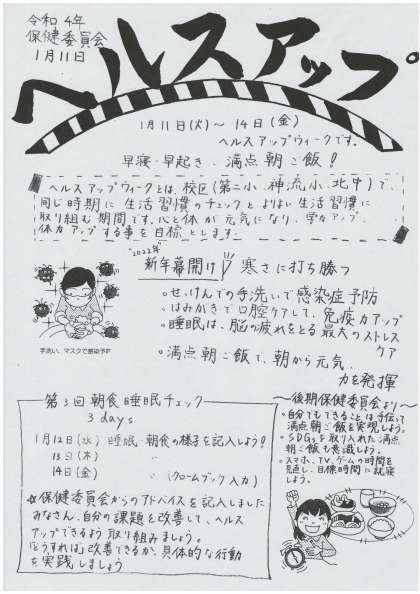 令和4年
保健委員会
1月11日
ヘルスアップ
1月11日(火)～14日(金)
ヘルスアップウィークです。
早寝・早起き、満点朝ご飯!
ヘルスアップウィークとは、校区(第二小、神流小、北中)で、
同じ時期に生活習慣のチェックとよりよい生活習慣に
取り組む期間です。心と体が元気になり、学力アップ、
体力アップする事を目標とします。
2022年
新年幕開け 寒さに打ち勝つ
・せっけんでの手洗いで感染症予防
・はみがきで口腔ケアして、免疫力アップ
・睡眠は、脳の疲れをとる最大のストレス
ケア
・満点朝ご飯で、朝から元気、
力を発揮
手洗い、マスクで感染予防
第3回朝食睡眠チェック
3days
1月12日(水) 睡眠・朝食の様子を記入しよう!
13日(木) 〃
14日(金) 〃 (クロームブック入力)
☆保健委員会からのアドバイスを記入しました
みなさん、自分の課題を改善して、ヘルス
アップできるよう取り組みましょう。
「どうすれば」改善できるか、具体的な行動
を実践しましょう
～後期保健委員会より～
・自分でもできることは手伝って
満点朝ご飯を実現しよう。
・SDGsを取り入れた満点
朝ご飯も意識しよう。
・スマホ、TV、ゲームの時間を
見直し、目標時間に就寝
しよう。